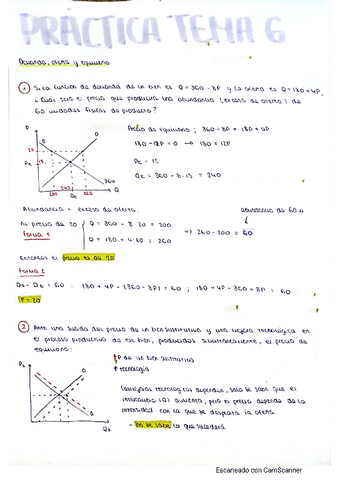 PRÁCTICA TEMA 6
Demanda, oferta y equilibrio
① Si la función de demanda de un bien es Q = 360 - 8P y la oferta es Q = 180 + 4P,
¿Cuál será el precio que produciría una abundancia (exceso de oferta) de
60 unidades físicas de producto?
Precio de equilibrio; 360 - 8P = 180 + 4P
180 - 12P = 0 → 180 = 12P
Pe = 15
Qe = 360 - 8·15 = 240
P
O
20
Pe
15
D
200 240 260
Qe
Q
Abundancia = exceso de oferta.
abundancia de 60 u
Al precio de 20
Q = 360 - 8·20 = 200
Q = 180 + 4·20 = 260
=> 260 - 200 = 60
Forma 1
Entonces el precio es de 20
Forma 2
Qo - QD = 60 ; 180 + 4P - (360 - 8P) = 60 ; 180 + 4P - 360 + 8P = 60
P = 20
② Ante una subida del precio de un bien sustitutivo y una mejora tecnológica en
el proceso productivo de ese bien, producidas simultáneamente, el precio de
equilibrio:
↑P de un bien sustitutivo
↑ tecnología
Px
O
D
Qx
intercambio (Q) aumenta, pero el precio depende de la
intensidad con la que se desplaza la oferta.
→ no se sabe lo que sucederá
Escaneado con CamScanner